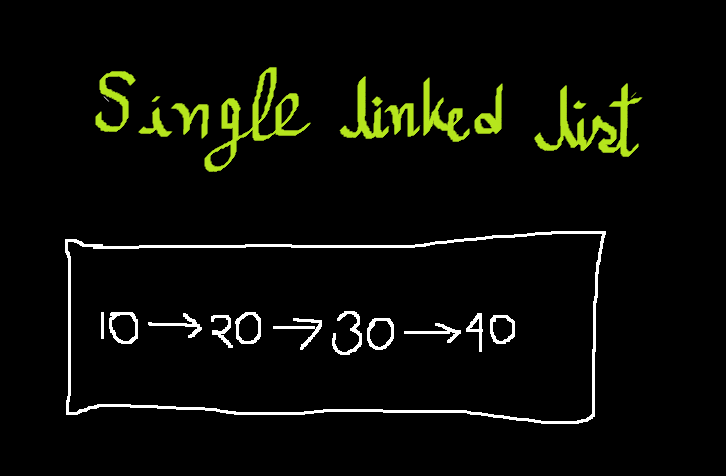 Single linked list
10 → 20 → 30 → 40